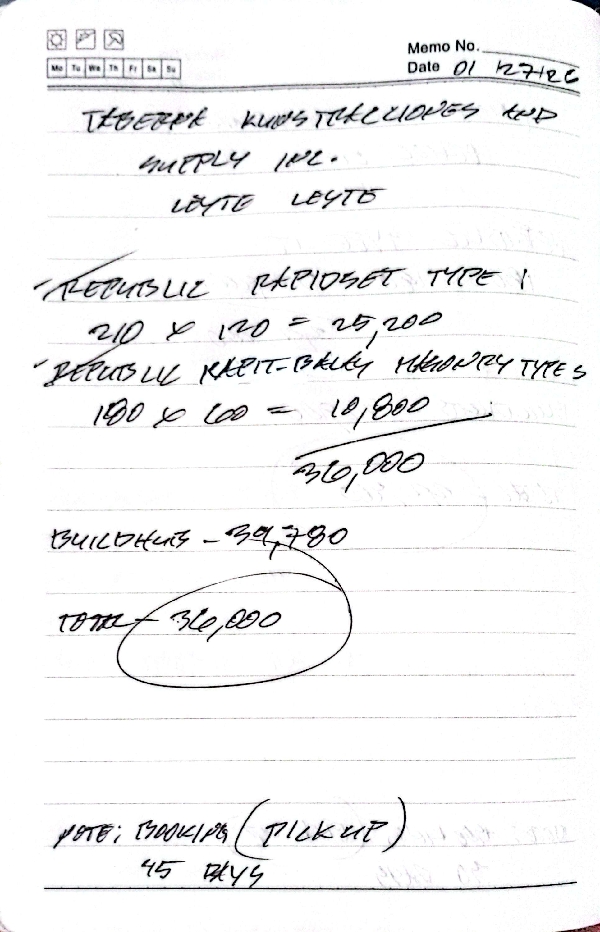 Memo No.
Mo Tu We Th Fr Sa Su
Date 01/27/26
TABERNA KUNSTRACCIONES AND
SUPPLY INC.
LEYTE LEYTE
REPUBLIC RAPIDSET TYPE 1
210 x 120 = 25,200
REPUBLIC KAPIT-BALAY MASONRY TYPE S
180 x 60 = 10,800
36,000
BUILDHUB - 39,780
TOTAL - 36,000
NOTE: BOOKING (PICK UP)
45 DAYS